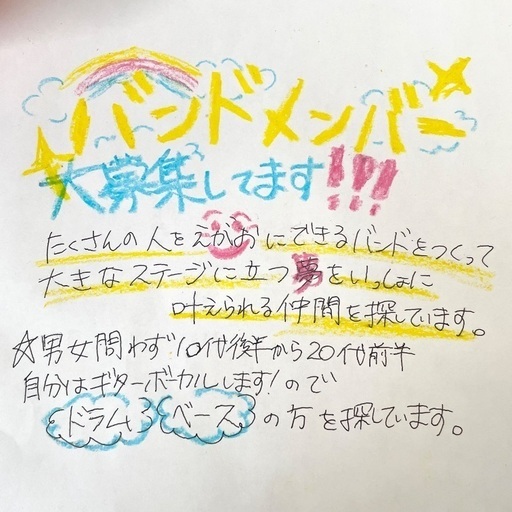 バンドメンバー
大募集してます!!!
たくさんの人をえがおにできるバンドをつくって
大きなステージに立つ夢をいっしょに
叶えられる仲間を探しています。
☆男女問わず10代後半から20代前半
自分はギターボーカルします!ので
ドラム ベース の方を探しています。